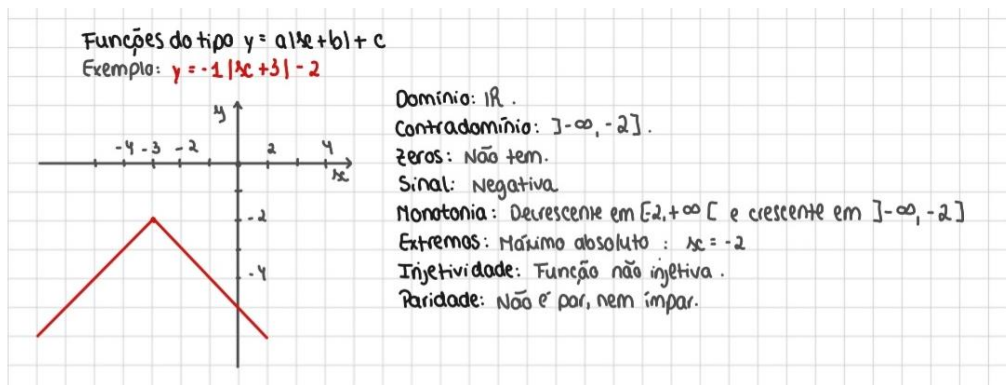 Funções do tipo y = a|x+b| + c
Exemplo: y = -1|x+3| - 2
y
-4 -3 -2 2 4
x
-2
-4
Domínio: IR.
Contradomínio: ]-∞, -2].
Zeros: Não tem.
Sinal: Negativa
Monotonia: Decrescente em [-2, +∞[ e crescente em ]-∞, -2]
Extremos: Máximo absoluto : x = -2
Injetividade: Função não injetiva.
Paridade: Não é par, nem ímpar.